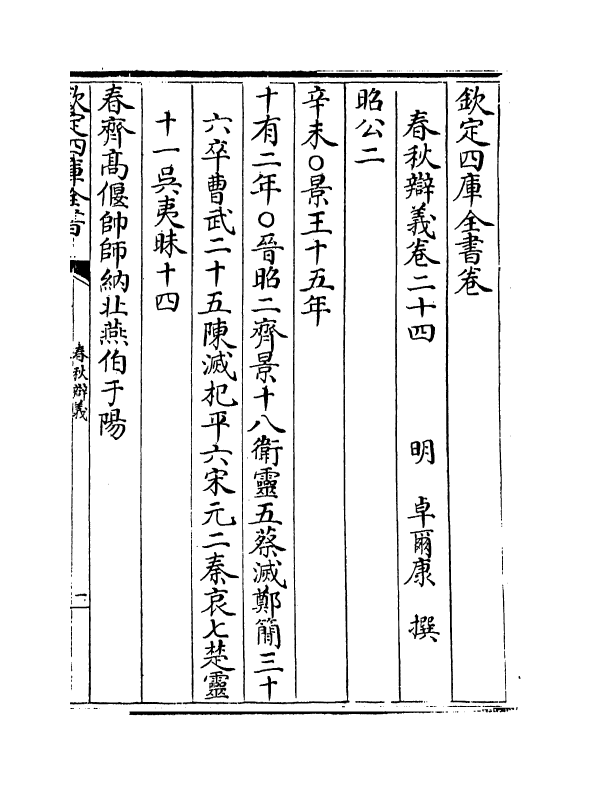 欽定四庫全書卷
春秋辯義卷二十四　明　卓爾康　撰
昭公二
辛未○景王十五年
十有二年○晉昭二齊景十八衛靈五蔡滅鄭簡三十
六卒曹武二十五陳滅杞平六宋元二秦哀七楚靈
十一吳夷昧十四
春齊高偃帥師納北燕伯于陽
欽定四庫全書
春秋辯義
一